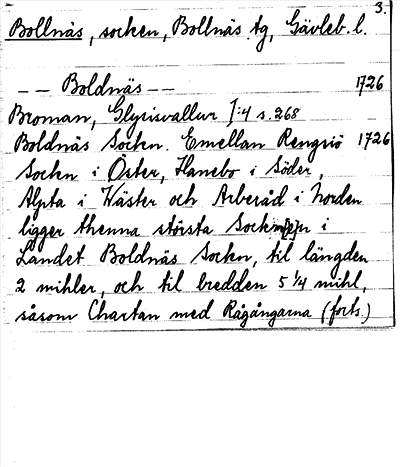 3.
Bollnäs, socken, Bollnäs tg, Gävleb. l.
-- Boldnäs -- 1726
Broman, Glysisvallur I:4 s. 268
Boldnäs Socken. Emellan Rengsiö 1726
Socken i Öster, Hanebo i Söder,
Alfta i Wäster och Arberåd i Norden
ligger thenna största Socknen i
Landet Boldnäs Sockn, til längden
2 mihler, och til bredden 5 1/4 mihl,
såsom Chartan med Rågångarna (forts.)